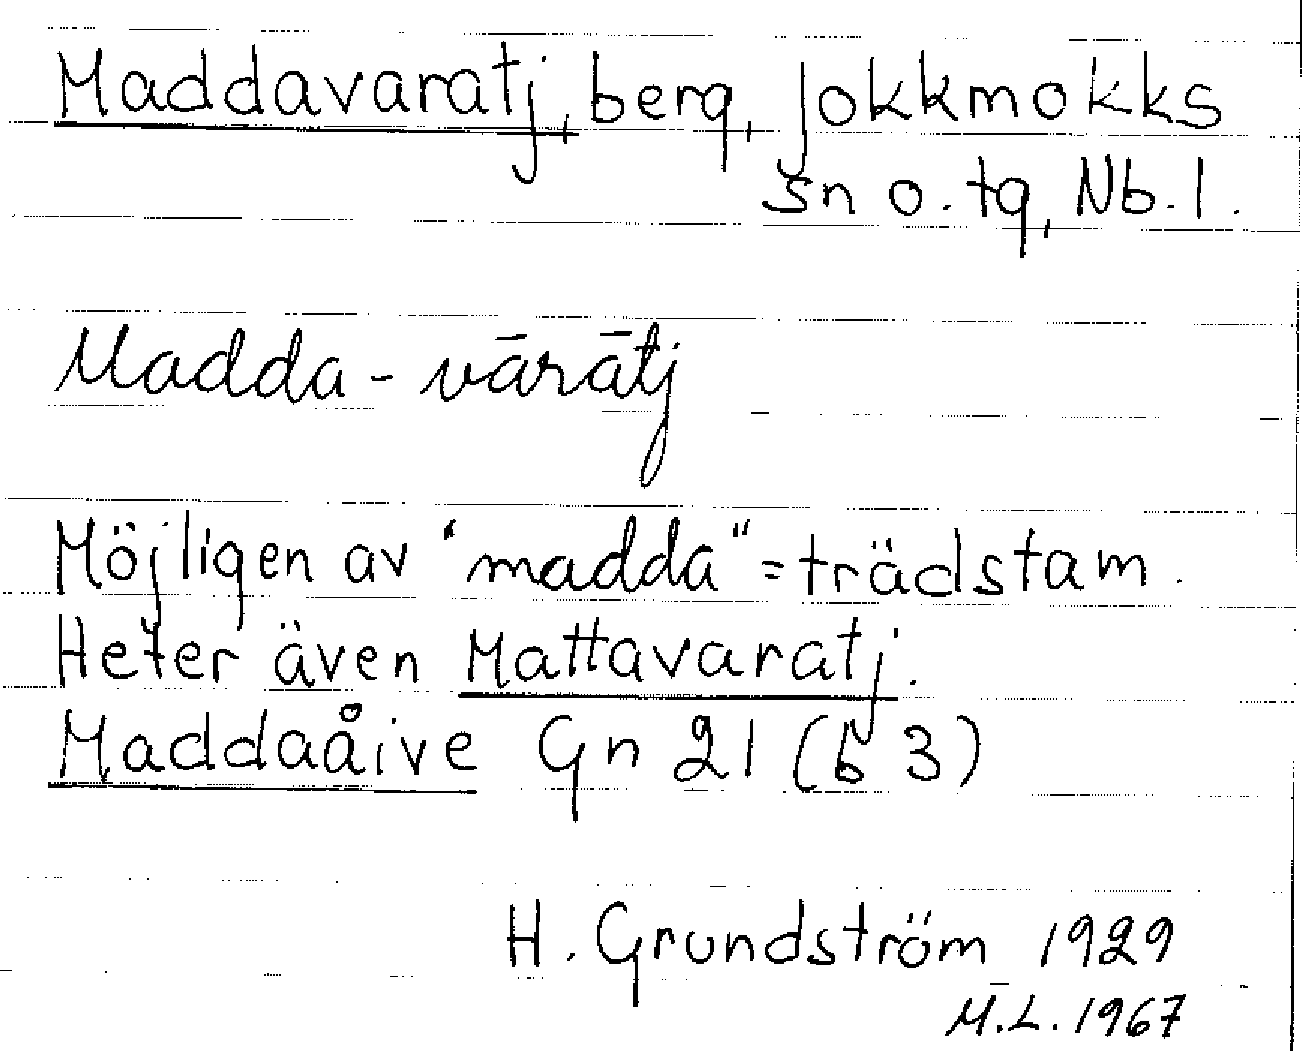 Maddavaratj, berg, Jokkmokks
sn o. tg, Nb. l.
Madda-vārātj
Möjligen av "madda" = trädstam.
Heter även Mattavaratj.
Maddaåive Gn 21 (b 3)
H. Grundström 1929
M.L. 1967